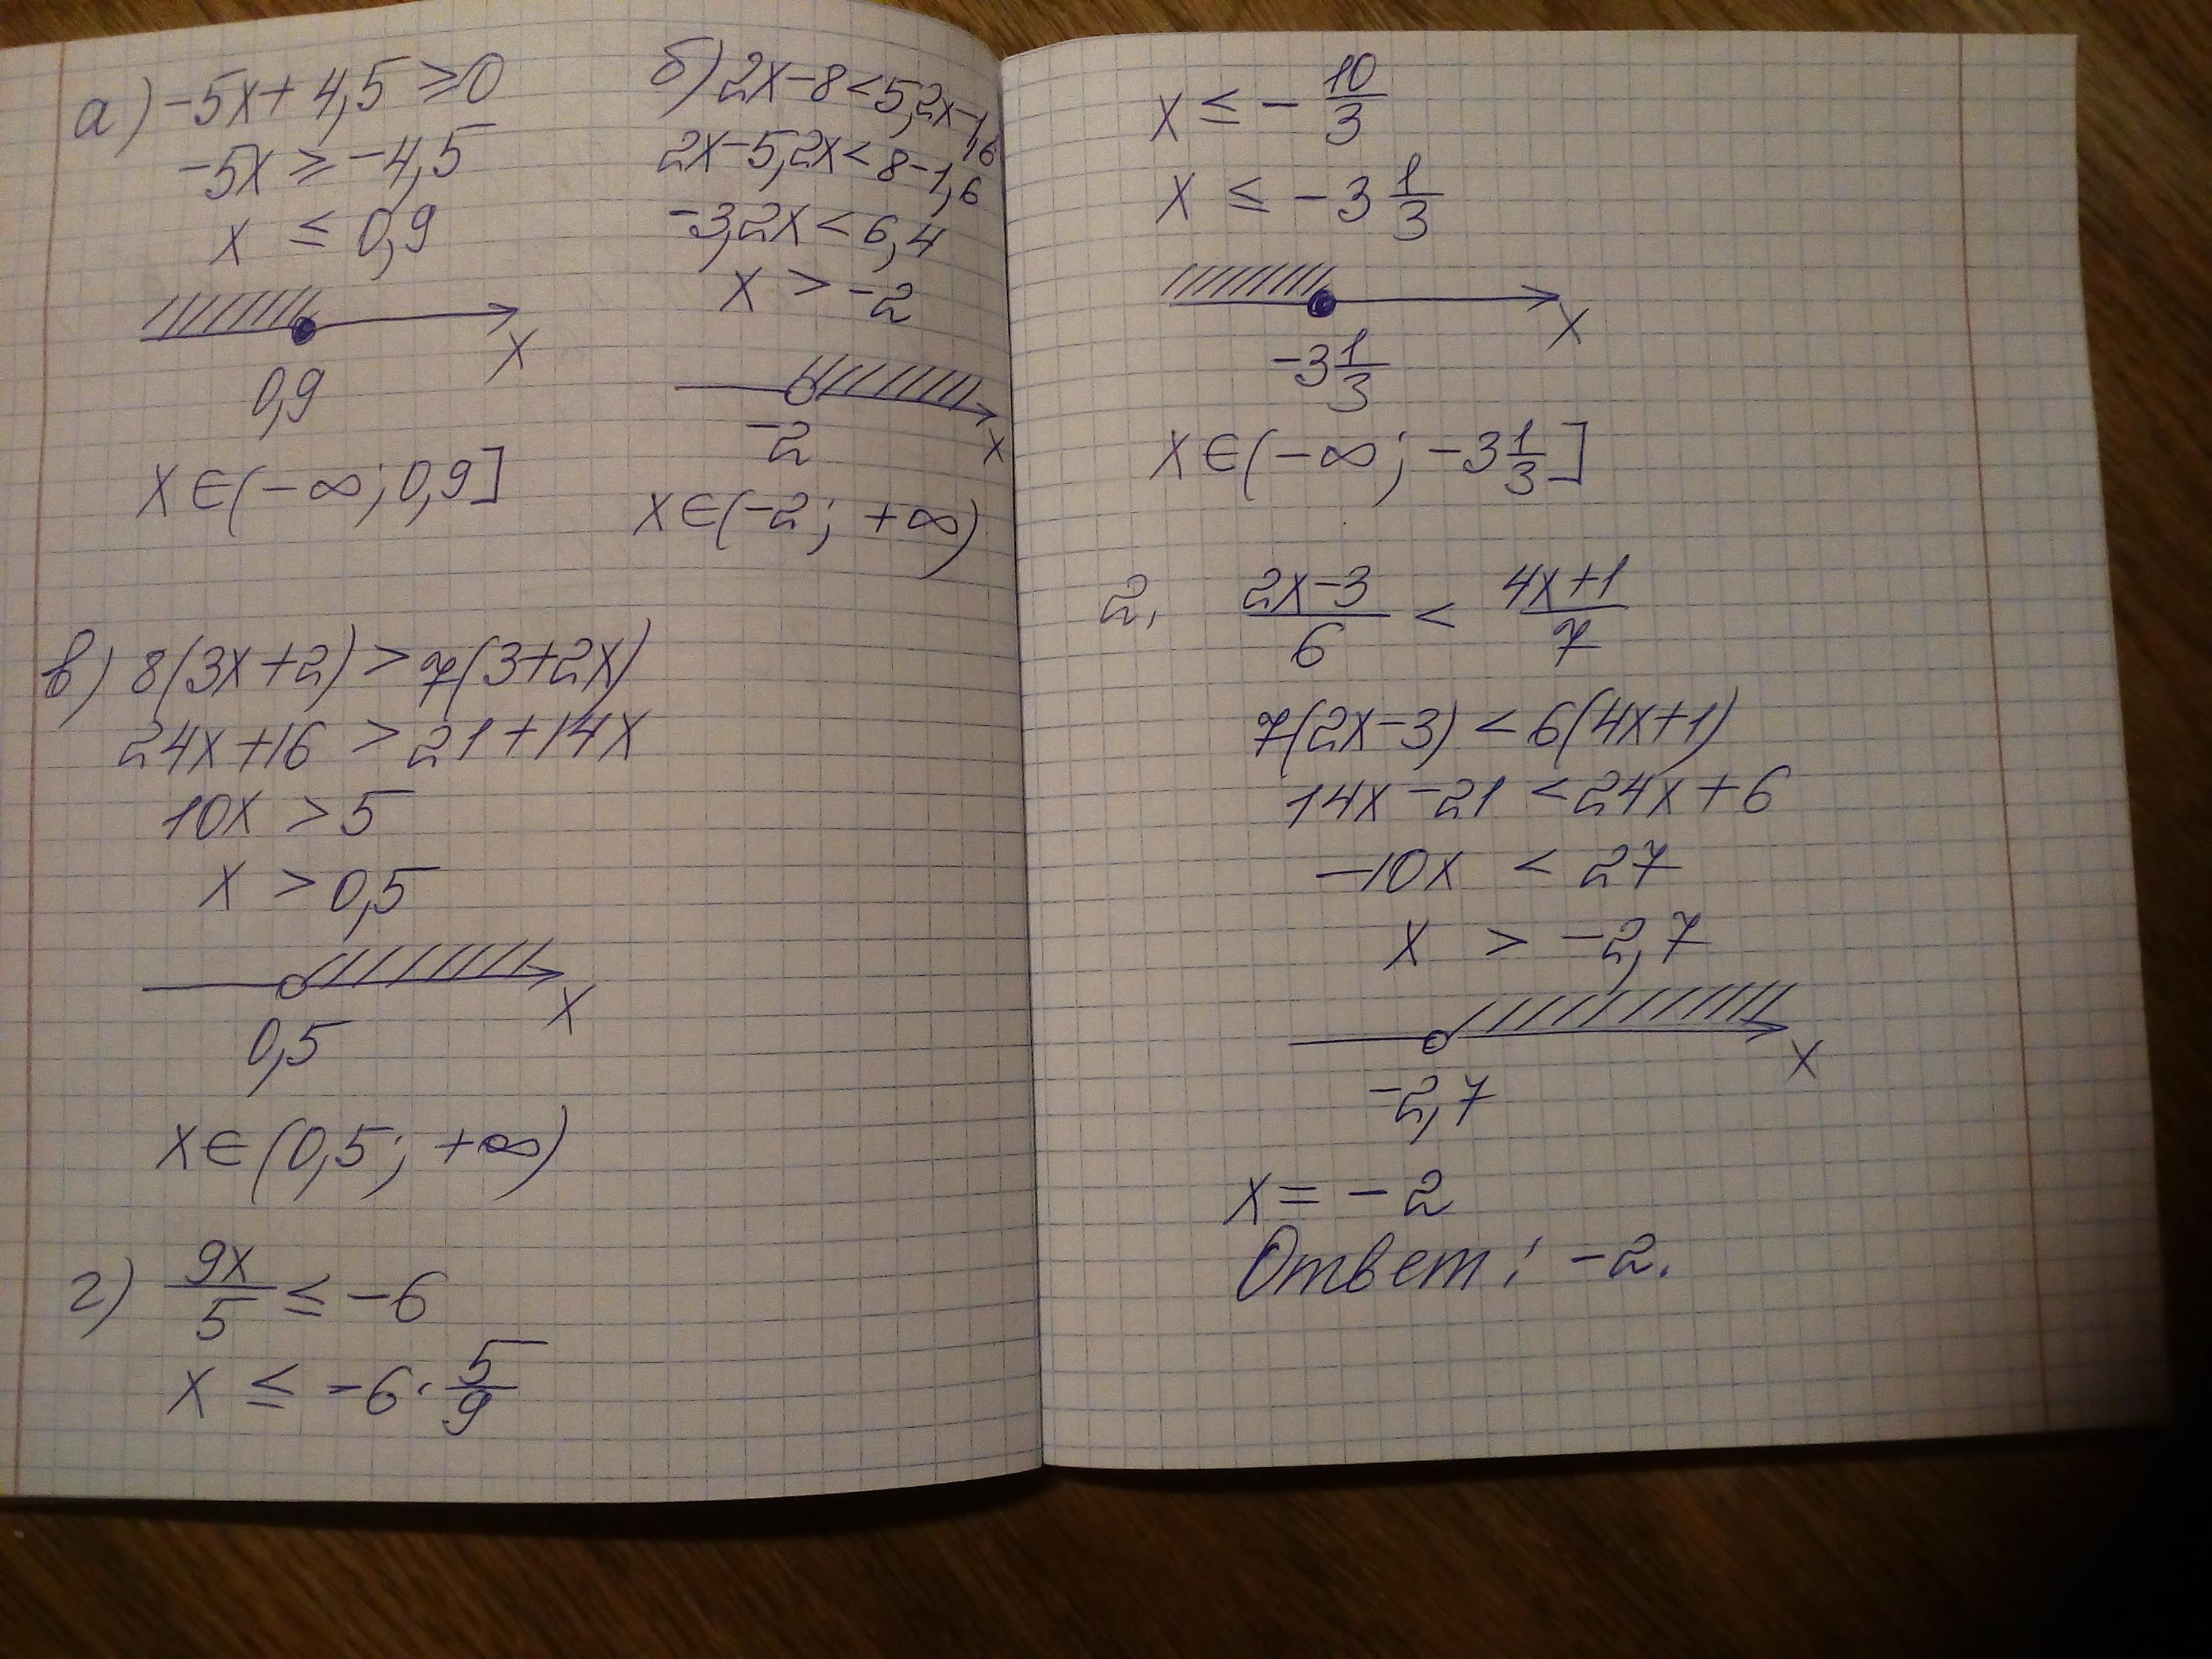 а) -5x + 4,5 ≥ 0
-5x ≥ -4,5
x ≤ 0,9
x
0,9
x ∈ (-∞; 0,9]
б) 2x - 8 < 5,2x - 1,6
2x - 5,2x < 8 - 1,6
-3,2x < 6,4
x > -2
-2
x
x ∈ (-2; +∞)
в) 8(3x + 2) > 7(3 + 2x)
24x + 16 > 21 + 14x
10x > 5
x > 0,5
x
0,5
x ∈ (0,5; +∞)
г) 9x/5 ≤ -6
x ≤ -6 · 5/9
x ≤ - 10/3
x ≤ -3 1/3
x
-3 1/3
x ∈ (-∞; -3 1/3]
2. (2x-3)/6 < (4x+1)/7
7(2x-3) < 6(4x+1)
14x - 21 < 24x + 6
-10x < 27
x > -2,7
x
-2,7
x = -2
Ответ: -2.